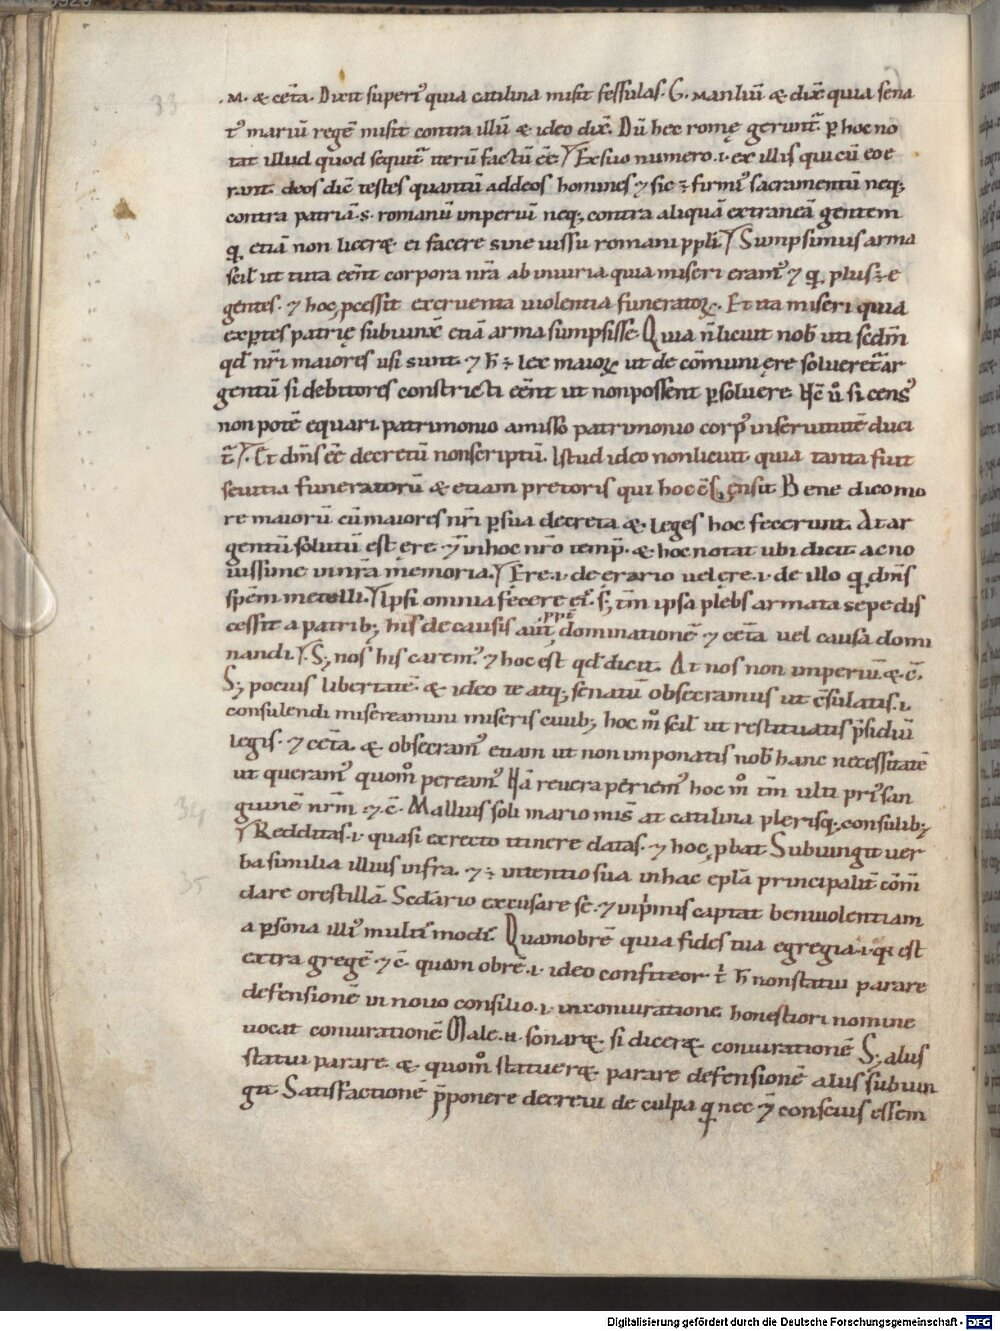 33
.M. & cet̄a. Dixit superiꝰ quia catilina misit fessulas. G. manliū & dix̄ quia sena
tꝰ mariū regē misit contra illū & ideo dix̄. Dū hec romę gerunt̄. ꝑ hoc no
tat illud quod sequit̄ iterū factū eē. Ex suo numero .i. ex illis qui cū eo e
rant. deos dic̄ testes quantū ad deos homines ⁊ sic ÷ firmꝰ sacramentū neq;
contra patriā .s. romanū imperiū neq; contra aliquā extraneā gentem
ꝗ etiā non liceret ei facere sine iussu romani ppli. Sumpsimus arma
scil̄ ut tuta eēnt corpora nr̄a ab iniuria quia miseri eramꝰ ⁊ ꝗ plus ÷ e
gentes. ⁊ hoc pcessit ex cruenta uiolentia funeratoꝝ. Et ita miseri quia
exꝑtes patrię subiunx̄ etiā arma sumpsisse. Quia n̄ licuit nob̄ uti scdm̄
qd̄ nr̄i maiores usi sunt. ⁊ h̄ ÷ lex maioꝝ ut de cōmuni ęre solueret̄ ar
gentū si debitores constricti eēnt ut non possent ꝑsoluere. Hc̄ ů si censꝰ
non potē equari patrimonio amisso patrimonio corpꝰ in seruitutē duci
t̄. Et dm̄s eē decretū non scriptū. Istud ideo non licuit quia tanta fuit
seuitia funeratorū & etiam pretoris qui hoc c̄sensit. Bene dico mo
re maiorū cū maiores nr̄i ꝑ sua decreta & leges hoc fecerunt. At ar
gentū solutū est ęre. in hoc nr̄o temp̄. & hoc notat ubi dicit ac no
uissime in nr̄a memoria. Ęre .i. de erario uel ęre .i. de illo ꝗ dm̄s
spēm metalli. Ipsi omnia fecere ei. s; tm̄ ipsa plebs armata sepe dis
cessit a patrib; his de causis aut̄ dominationē ⁊ cet̄a uel causa domi
nandi. S; nos his caremꝰ ⁊ hoc est qd̄ dicit. At nos non imperiū & c̄.
S; pocius libertatē. & ideo te atq; senatū obsecramus ut c̄sulatis .i.
consulendi misereamini miseris ciuib; hoc mͦ scil̄ ut restituatis p̄sidiū
legis. ⁊ cet̄a. & obsecramꝰ etiam ut non imponatis nob̄ hanc necessitatē
ut queramꝰ quomͦ pereamꝰ. Nā reuera periemꝰ hoc mͦ tm̄ ulti priꝰ san
34
guinē nr̄m ⁊ c̄. Mallius soli mario mis̄ at catilina plerisq; consulib;
Redditas .i. quasi ex recto itinere datas. ⁊ hoc ꝓbat. Subiungit uer
35
ba similia illius infra. ⁊ ÷ intentio sua in hac epl̄a principalit̄ cōm̄
dare orestillā. Sedario excusare se. ⁊ inp̄mis captat beniuolentiam
a ꝑsona illiꝰ multis modis. Quamobrē quia fides tua egregia .i. qi est
extra gregē ⁊ c̄. quam obrē .i. ideo confiteor ꝙ h̄ non statui parare
defensionē in nouo consilio .i. in coniuratione. honestiori nomine
uocat coniurationē. Male .n. sonaret si diceret coniurationē. S; alus
statui parare. & quomͦ statueret parare defensionē alus subiun
git. Satisfactionē p̄ponere decreui de culpa ꝗ nec consciuis essem
Digitalisierung gefördert durch die Deutsche Forschungsgemeinschaft - DFG